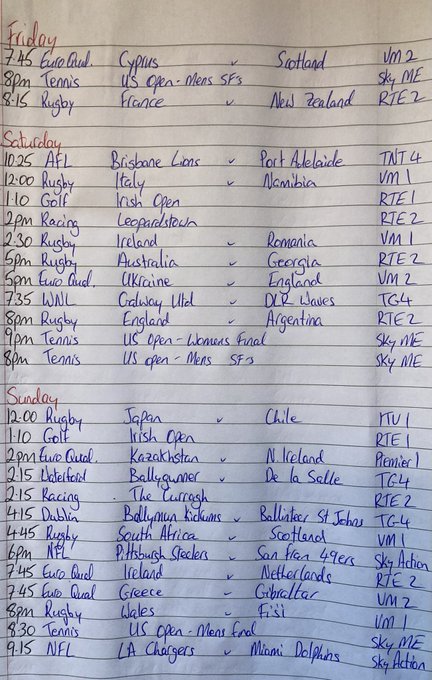 Friday
7.45 Euro Qual. Cyprus v Scotland VM2
8pm Tennis US Open - Mens SFs Sky ME
8.15 Rugby France v New Zealand RTE 2
Saturday
10.25 AFL Brisbane Lions v Port Adelaide TNT 4
12.00 Rugby Italy v Namibia VM 1
1.10 Golf Irish Open RTE 1
2pm Racing Leopardstown RTE2
2.30 Rugby Ireland v Romania VM 1
5pm Rugby Australia v Georgia RTE 2
5pm Euro Qual. Ukraine v England VM 2
7.35 WNL Galway Utd v DLR Waves TG4
8pm Rugby England v Argentina RTE 2
9pm Tennis US Open - Womens Final Sky ME
8pm Tennis US open - Mens SF's Sky ME
Sunday
12.00 Rugby Japan v Chile ITV 1
1.10 Golf Irish Open RTE 1
2pm Euro Qual. Kazakhstan v N. Ireland Premier 1
2.15 Waterford Ballygunner v De la Salle TG4
2.15 Racing The Curragh RTE 2
4.15 Dublin Ballymun Kickhams v Ballinteer St Johns TG4
4.45 Rugby South Africa v Scotland VM 1
6pm NFL Pittsburgh Steelers v San Fran 49ers Sky Action
7.45 Euro Qual Ireland v Netherlands RTE 2
7.45 Euro Qual Greece v Gibraltar VM 2
8pm Rugby Wales v Fiji VM 1
8.30 Tennis US Open - Mens Final Sky ME
9.15 NFL LA Chargers v Miami Dolphins Sky Action